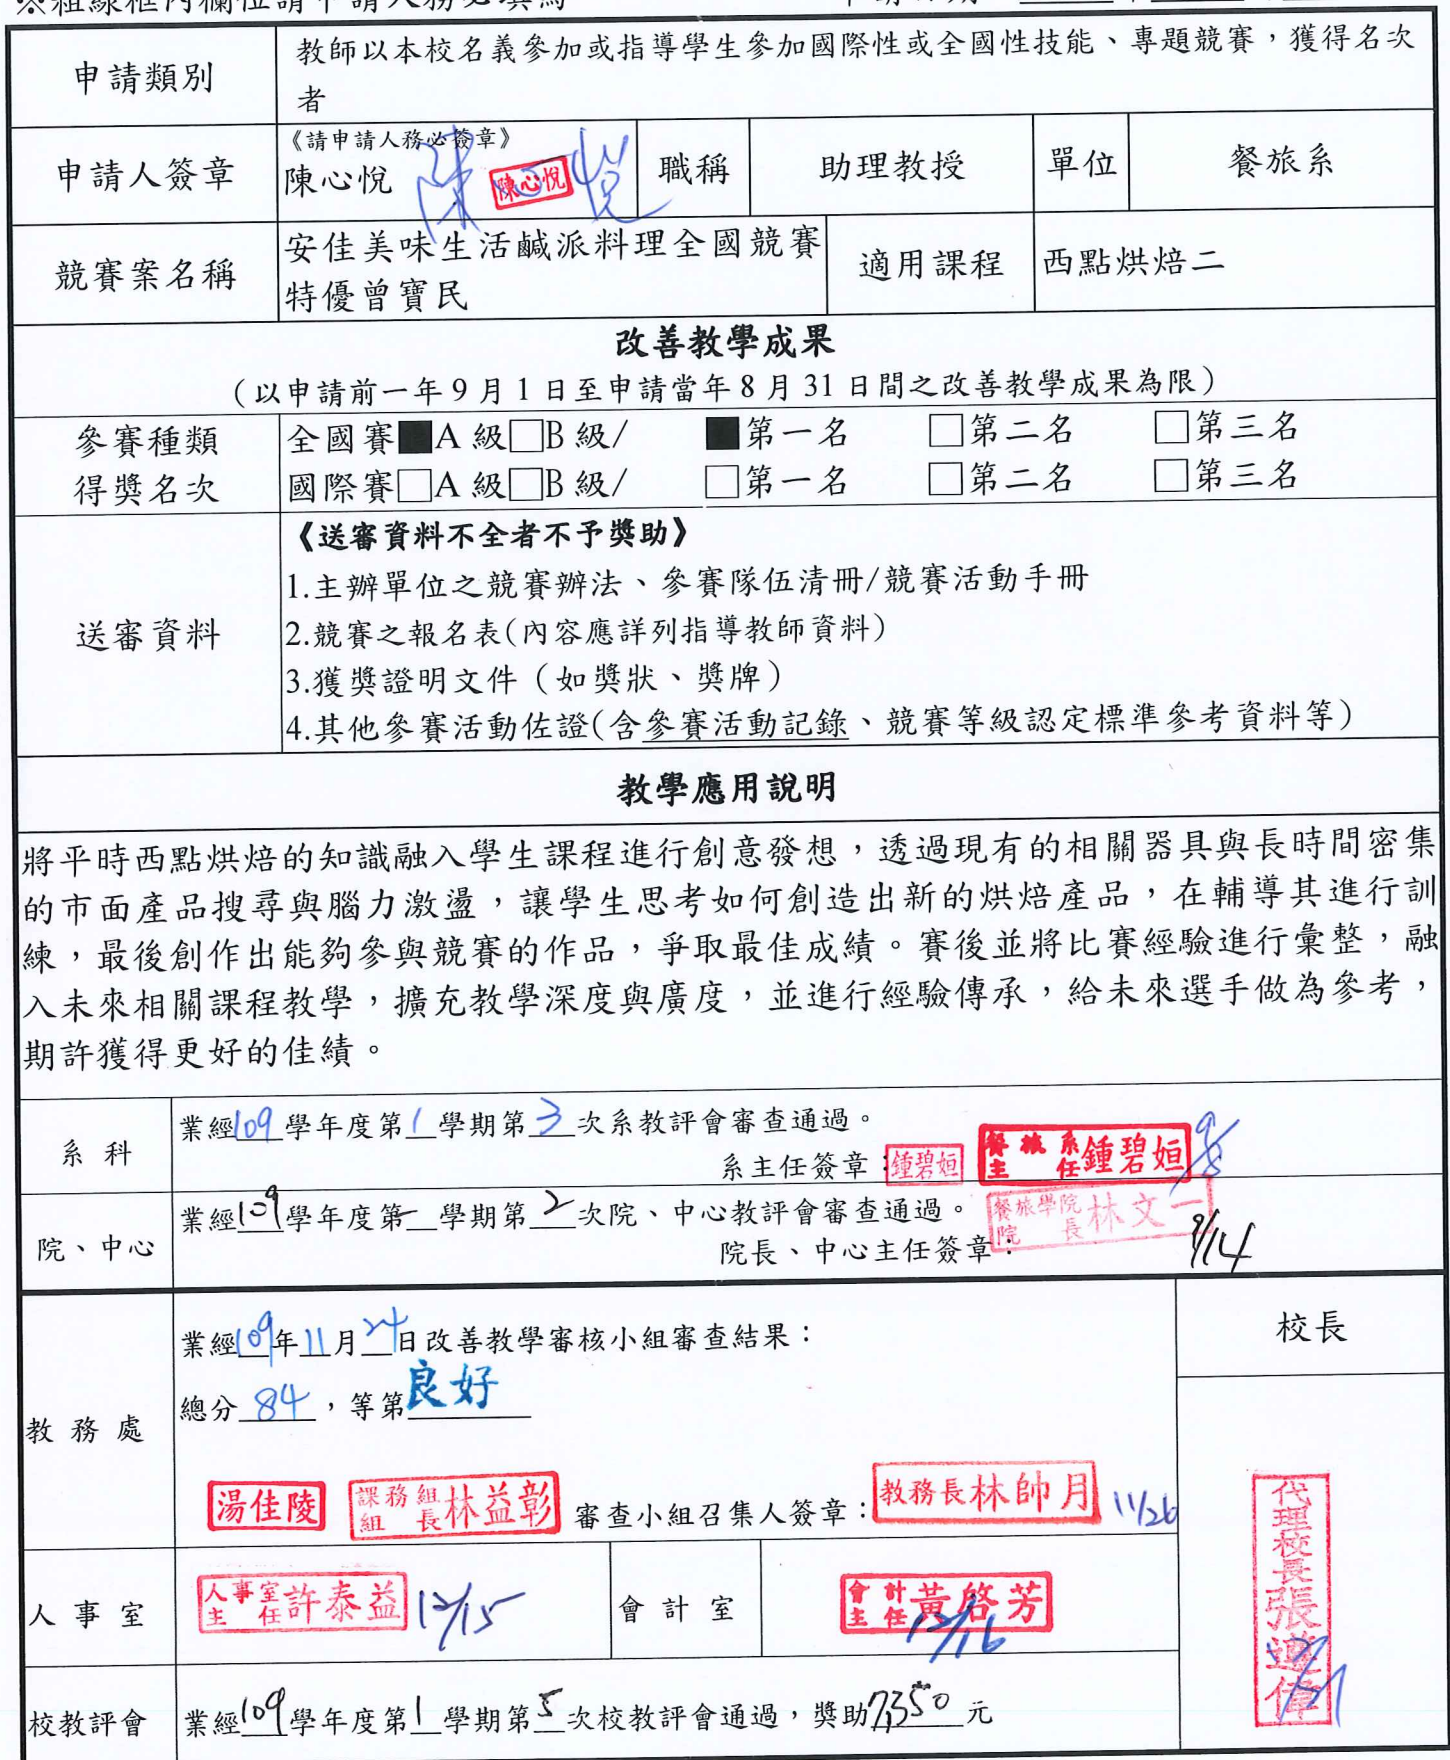 ※粗線框內欄位請申請人務必填寫
申請類別
教師以本校名義參加或指導學生參加國際性或全國性技能、專題競賽，獲得名次
者
申請人簽章
《請申請人務必簽章》
陳心悅 陳 悅
陳心悅
職稱
助理教授
單位
餐旅系
競賽案名稱
安佳美味生活鹹派料理全國競賽
特優曾寶民
適用課程
西點烘焙二
改善教學成果
（以申請前一年 9 月 1 日至申請當年 8 月 31 日間之改善教學成果為限）
參賽種類
得獎名次
全國賽■A 級□B 級/ ■第一名 □第二名 □第三名
國際賽□A 級□B 級/ □第一名 □第二名 □第三名
送審資料
《送審資料不全者不予獎助》
1.主辦單位之競賽辦法、參賽隊伍清冊/競賽活動手冊
2.競賽之報名表(內容應詳列指導教師資料)
3.獲獎證明文件（如獎狀、獎牌）
4.其他參賽活動佐證(含參賽活動記錄、競賽等級認定標準參考資料等)
教學應用說明
將平時西點烘焙的知識融入學生課程進行創意發想，透過現有的相關器具與長時間密集
的市面產品搜尋與腦力激盪，讓學生思考如何創造出新的烘焙產品，在輔導其進行訓
練，最後創作出能夠參與競賽的作品，爭取最佳成績。賽後並將比賽經驗進行彙整，融
入未來相關課程教學，擴充教學深度與廣度，並進行經驗傳承，給未來選手做為參考，
期許獲得更好的佳績。
系 科
業經109學年度第1學期第3次系教評會審查通過。
系主任簽章：鍾碧姮 餐旅系主任鍾碧姮
院、中心
業經109學年度第一學期第2次院、中心教評會審查通過。
院長、中心主任簽章： 餐旅學院院長林文一 9/14
教 務 處
業經109年11月24日改善教學審核小組審查結果：
總分84，等第良好
湯佳陵 課務組組長林益彰 審查小組召集人簽章：教務長林帥月 11/26
校長
代理校長張遵偉
人 事 室
人事室主任許泰益 12/15
會 計 室
會計主任黃啓芳 12/16
校教評會
業經109學年度第1學期第5次校教評會通過，獎助7,350元